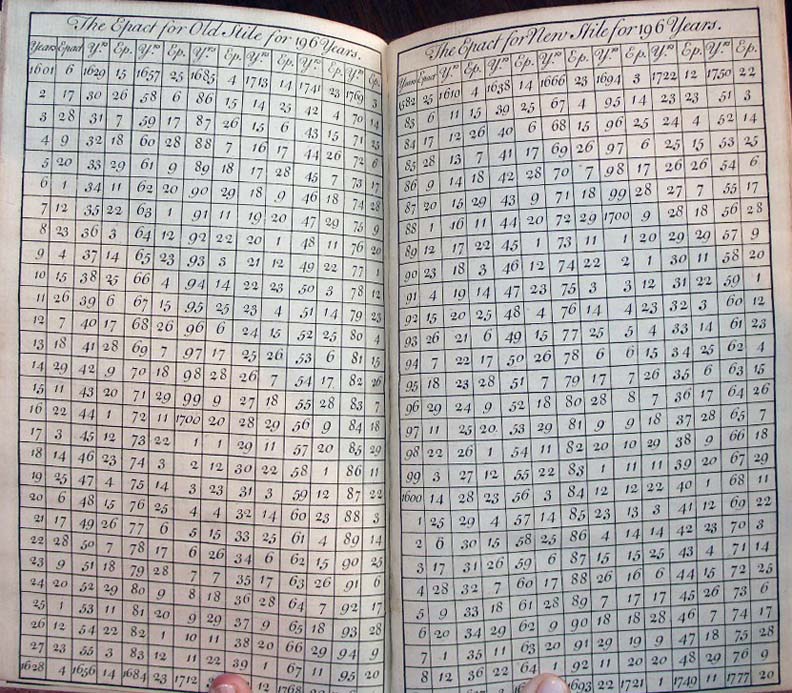 The Epact for Old Stile for 196 Years.
Years Epact Y.rs Ep. Y.rs Ep. Y.rs Ep. Y.rs Ep. Y.rs Ep. Y.rs Ep.
1601 6 1629 15 1657 25 1685 4 1713 14 1741 23 1769 3
2 17 30 26 58 6 86 15 14 25 42 4 70 14
3 28 31 7 59 17 87 26 15 6 43 15 71 25
4 9 32 18 60 28 88 7 16 17 44 26 72 6
5 20 33 29 61 9 89 18 17 28 45 7 73 17
6 1 34 11 62 20 90 29 18 9 46 18 74 28
7 12 35 22 63 1 91 11 19 20 47 29 75 9
8 23 36 3 64 12 92 22 20 1 48 11 76 20
9 4 37 14 65 23 93 3 21 12 49 22 77 1
10 15 38 25 66 4 94 14 22 23 50 3 78 12
11 26 39 6 67 15 95 25 23 4 51 14 79 23
12 7 40 17 68 26 96 6 24 15 52 25 80 4
13 18 41 28 69 7 97 17 25 26 53 6 81 15
14 29 42 9 70 18 98 28 26 7 54 17 82 26
15 11 43 20 71 29 99 9 27 18 55 28 83 7
16 22 44 1 72 11 1700 20 28 29 56 9 84 18
17 3 45 12 73 22 1 1 29 11 57 20 85 29
18 14 46 23 74 3 2 12 30 22 58 1 86 11
19 25 47 4 75 14 3 23 31 3 59 12 87 22
20 6 48 15 76 25 4 4 32 14 60 23 88 3
21 17 49 26 77 6 5 15 33 25 61 4 89 14
22 28 50 7 78 17 6 26 34 6 62 15 90 25
23 9 51 18 79 28 7 7 35 17 63 26 91 6
24 20 52 29 80 9 8 18 36 28 64 7 92 17
25 1 53 11 81 20 9 29 37 9 65 18 93 28
26 12 54 22 82 1 10 11 38 20 66 29 94 9
27 23 55 3 83 12 11 22 39 1 67 11 95 20
1628 4 1656 14 1684 23 1712 12 1768
The Epact for New Stile for 196 Years.
Years Epact Y.rs Ep. Y.rs Ep. Y.rs Ep. Y.rs Ep. Y.rs Ep. Y.rs Ep.
1582 25 1610 4 1638 14 1666 23 1694 3 1722 12 1750 22
83 6 11 15 39 25 67 4 95 14 23 23 51 3
84 17 12 26 40 6 68 15 96 25 24 4 52 14
85 28 13 7 41 17 69 26 97 6 25 15 53 25
86 9 14 18 42 28 70 7 98 17 26 26 54 6
87 20 15 29 43 9 71 18 99 28 27 7 55 17
88 1 16 11 44 20 72 29 1700 9 28 18 56 28
89 12 17 22 45 1 73 11 1 20 29 29 57 9
90 23 18 3 46 12 74 22 2 1 30 11 58 20
91 4 19 14 47 23 75 3 3 12 31 22 59 1
92 15 20 25 48 4 76 14 4 23 32 3 60 12
93 26 21 6 49 15 77 25 5 4 33 14 61 23
94 7 22 17 50 26 78 6 6 15 34 25 62 4
95 18 23 28 51 7 79 17 7 26 35 6 63 15
96 29 24 9 52 18 80 28 8 7 36 17 64 26
97 11 25 20 53 29 81 9 9 18 37 28 65 7
98 22 26 1 54 11 82 20 10 29 38 9 66 18
99 3 27 12 55 22 83 1 11 11 39 20 67 29
1600 14 28 23 56 3 84 12 12 22 40 1 68 11
1 25 29 4 57 14 85 23 13 3 41 12 69 22
2 6 30 15 58 25 86 4 14 14 42 23 70 3
3 17 31 26 59 6 87 15 15 25 43 4 71 14
4 28 32 7 60 17 88 26 16 6 44 15 72 25
5 9 33 18 61 28 89 7 17 17 45 26 73 6
6 20 34 29 62 9 90 18 18 28 46 7 74 17
7 1 35 11 63 20 91 29 19 9 47 18 75 28
8 12 36 22 64 1 92 11 20 20 48 29 76 9
1693 22 1721 1 1749 11 1777 20